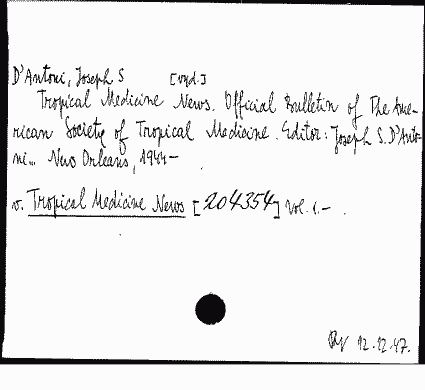 D'Antoni, Joseph S [vyd.]
Tropical Medicine News. Official Bulletin of The Ame-
rican Society of Tropical Medicine. Editor: Joseph S. D'Anto-
ni.. New Orleans, 1944-
v. Tropical Medicine News [204354] Vol. 1.-
12.12.47.